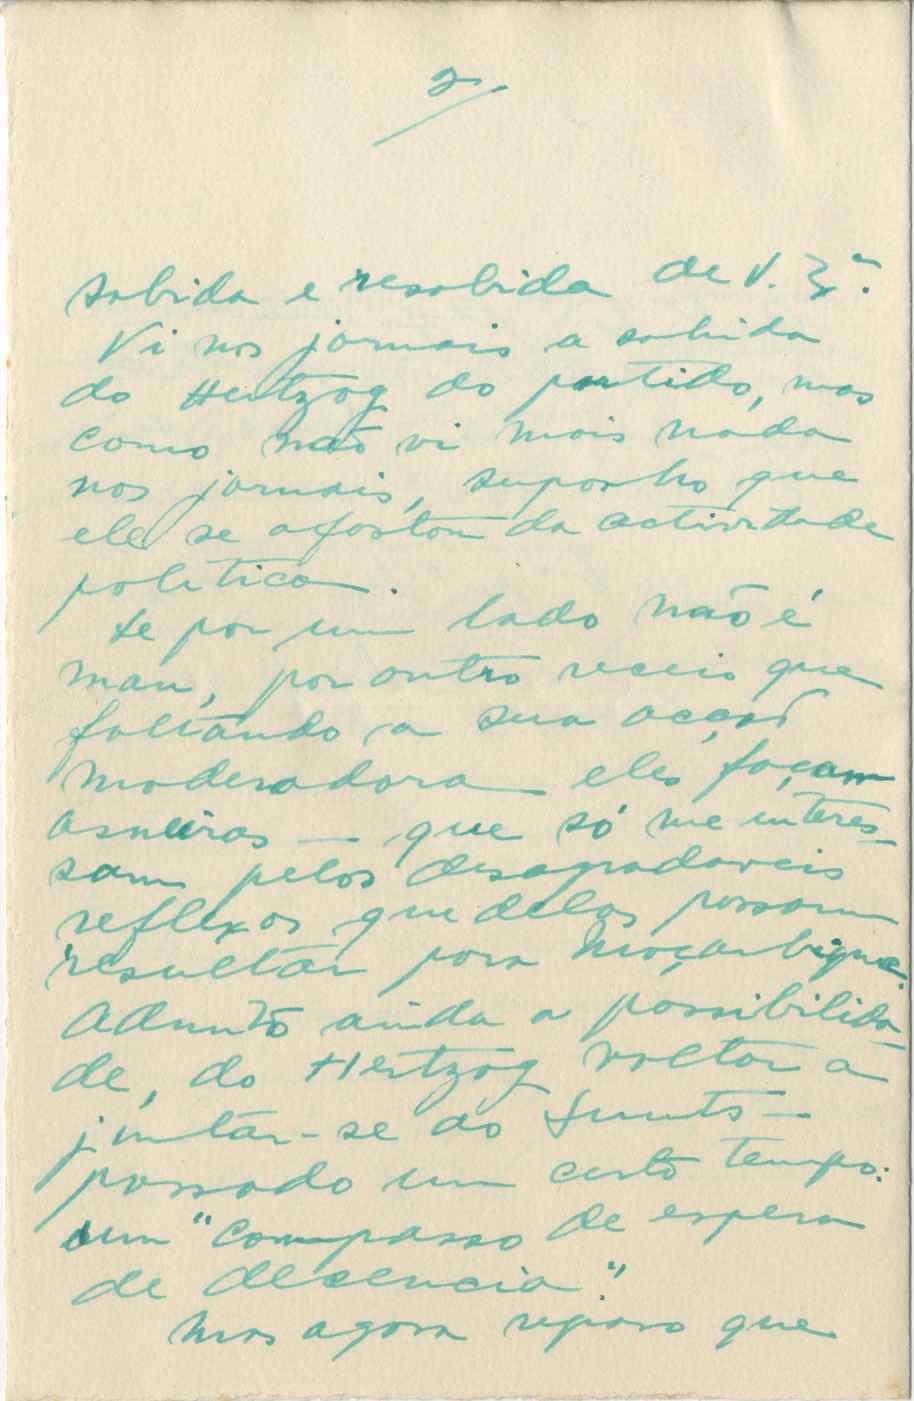 2
sabida e resabida de V. Exª.
Vi nos jornais a sahida
do Hertzog do partido, mas
como não vi mais nada
nos jornais, suponho que
ele se afastou da actividade
politica.
Se por um lado não é
mau, por outro receio que
faltando a sua acção
moderadora eles façam
asneiras — que só me interes-
sam pelos desagradaveis
reflexos que delas possam
resultar para Moçambique.
Admito ainda a possibilida-
de, do Hertzog voltar a
juntar-se ao Smuts —
passado um certo tempo:
um "compasso de espera
de decencia".
Mas agora reparo que